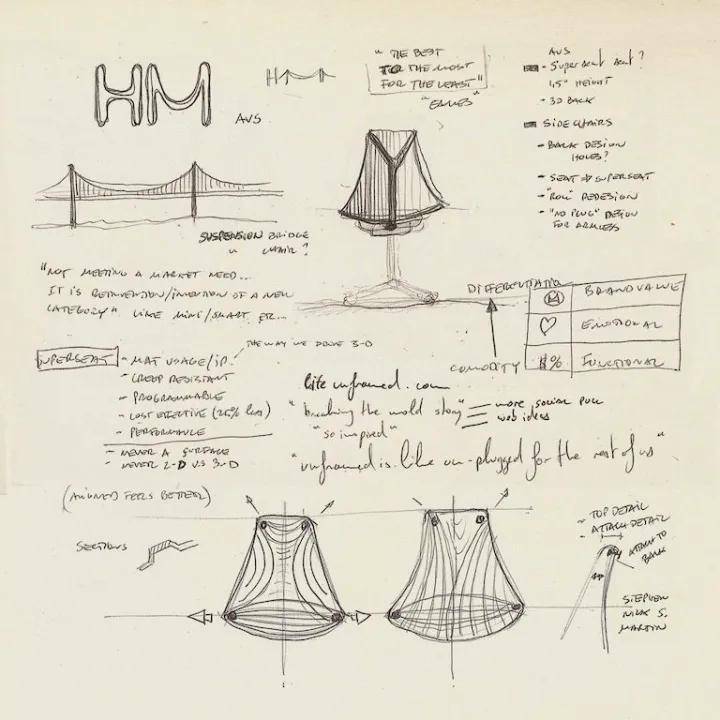 HM
HM
AVS
"THE BEST
TO THE MOST
FOR THE LEAST"
"EAMES"
AVS
- SUPERSEAT SEAT?
1,5" HEIGHT
- 3D BACK
SIDE CHAIRS
- BACK DESIGN
HOLES?
- SEAT → SUPERSEAT
- "ROLL" REDESIGN
- "NO PLUG" DESIGN
FOR ARMLESS
SUSPENSION BRIDGE
CHAIR?
"NOT MEETING A MARKET NEED...
IT IS REINVENTION/INVENTION OF A NEW
CATEGORY" LIKE MINI/SMART, ETC...
DIFFERENTIATION
COMODITY
BRANDVALUE
EMOTIONAL
$% FUNCTIONAL
THE WAY WE DRIVE 3-D
SUPERSEAT
- MAT USAGE/IP!
- CREEP RESISTANT
- PROGRAMMABLE
- COST EFFECTIVE (25% less)
- PERFORMANCE
- NEVER A SURFACE
- NEVER 2-D VS 3-D
life unframed.com
"breaking the mold story"
more social pull
web ideas
"so inspired"
"unframed is like un-plugged for the rest of us"
(ALIGNED FEELS BETTER)
SECTIONS
- TOP DETAIL
- ATTACH DETAIL
ATTACH TO
BACK
STEPHEN
NICK S.
MARTIN